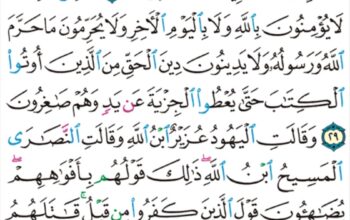 لَا يُؤْمِنُونَ بِٱللَّهِ وَلَا بِٱلْيَوْمِ ٱلْأَخِرِ وَلَا يُحَرِّمُونَ مَا حَرَّمَ
ٱللَّهُ وَرَسُولُهُۥ وَلَا يَدِينُونَ دِينَ ٱلْحَقِّ مِنَ ٱلَّذِينَ أُوتُوا۟
ٱلْكِتَٰبَ حَتَّىٰ يُعْطُوا۟ ٱلْجِزْيَةَ عَن يَدٍ وَهُمْ صَٰغِرُونَ
٢٩ وَقَالَتِ ٱلْيَهُودُ عُزَيْرٌ ٱبْنُ ٱللَّهِ وَقَالَتِ ٱلنَّصَٰرَى
ٱلْمَسِيحُ ٱبْنُ ٱللَّهِ ۖ ذَٰلِكَ قَوْلُهُم بِأَفْوَٰهِهِمْ ۖ
يُضَٰهِـُٔونَ قَوْلَ ٱلَّذِينَ كَفَرُوا۟ مِن قَبْلُ ۚ قَٰتَلَهُمُ